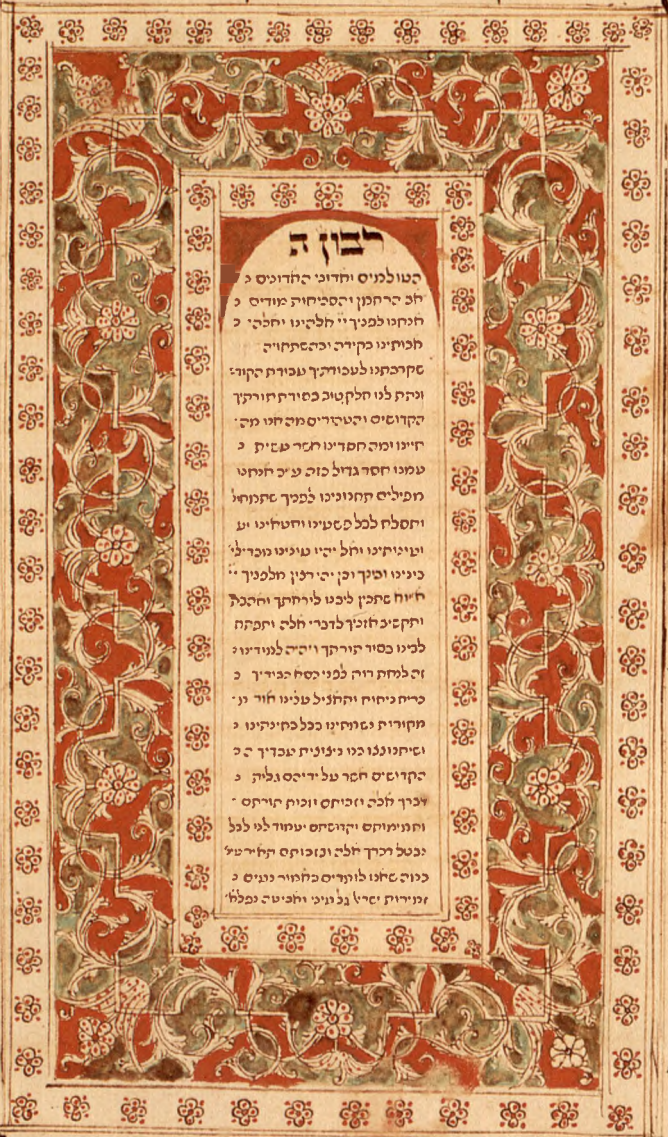 רבון ה
העולמים ואדוני האדונים
אב הרחמן והסליחות מודים
אנחנו לפניך יי אלהינו ואלהי
אבותינו בקידה ובהשתחויה
שקרבתנו לעבודתיך עבודת הקודש
ונתת לנו חלק טוב בסודת תורתיך
הקדושים והטהורים מה אנו מה
חיינו ומה חסדינו אשר עשית
עמנו חסד גדול כזה ע״כ אנחנו
מפילים תחנונינו לפניך שתמחול
ותסלח לכל פשעינו וחטאינו וע
ועונותינו ואל יהיו עונינו מבדילי
בינינו ובינך ובכן יהי רצון מלפניך
שתכין ליבנו ליראתך ואהבת
ותקשיב אזניך לדברי אלה ותפתח
לבינו בסוד תורתך ויהיה למודינו
זה לנחת רוח לפני כסא כבודיך
כריח ניחוח ותאציל עלינו אור
מקורות נשמתינו בכל בחינתינו
ושיתנוצצו בנו ניצוצות עבדיך ה
הקדושים אשר על ידיהם גלית
דבריך אלה וזכותם וזכות תורתם
ותמימותם וקדושתם יעמוד לנו לבל
נכשל בדברך אלה ובזכותם תאיר עינ
במה שאנו לומדים כאמור נעים
זמירות ישראל גל עיני ואביטה נפלא